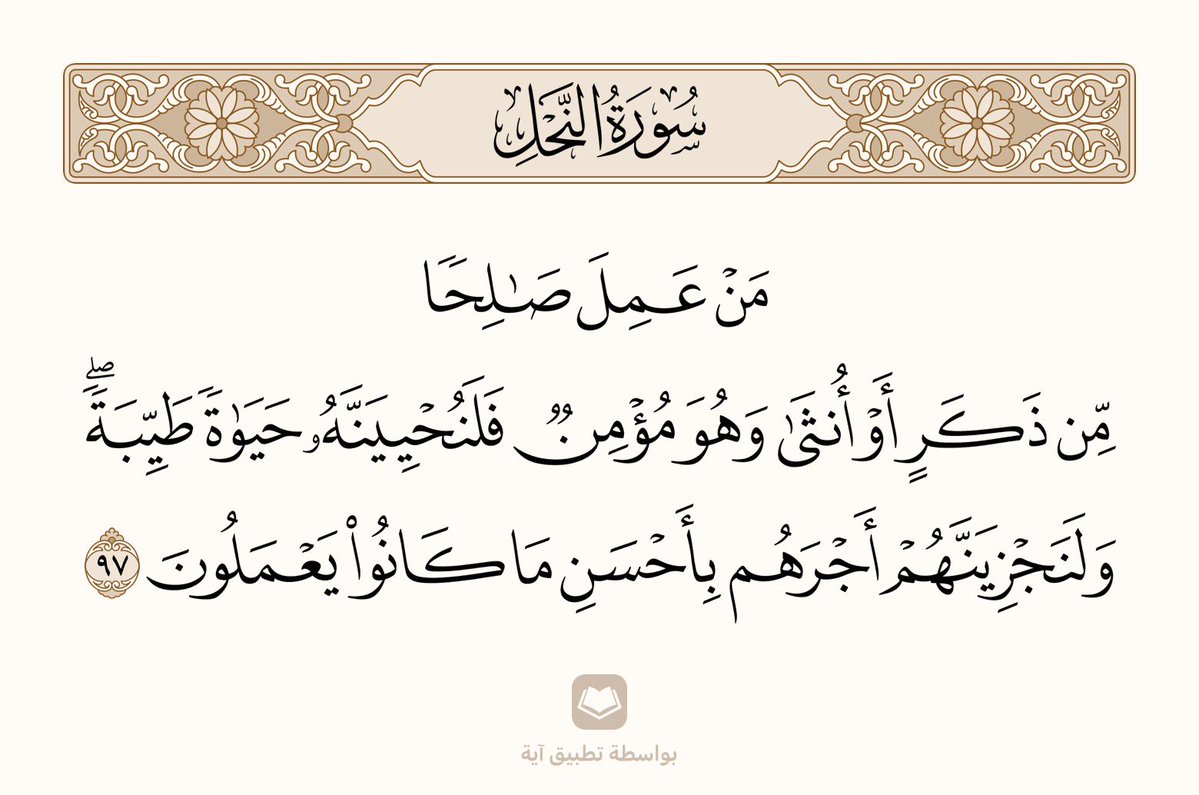 سُورَةُ النَّحۡلِ
مَنۡ عَمِلَ صَٰلِحٗا
مِّن ذَكَرٍ أَوۡ أُنثَىٰ وَهُوَ مُؤۡمِنٞ فَلَنُحۡيِيَنَّهُۥ حَيَوٰةٗ طَيِّبَةٗۖ
وَلَنَجۡزِيَنَّهُمۡ أَجۡرَهُم بِأَحۡسَنِ مَا كَانُواْ يَعۡمَلُونَ ٩٧
بواسطة تطبيق آية